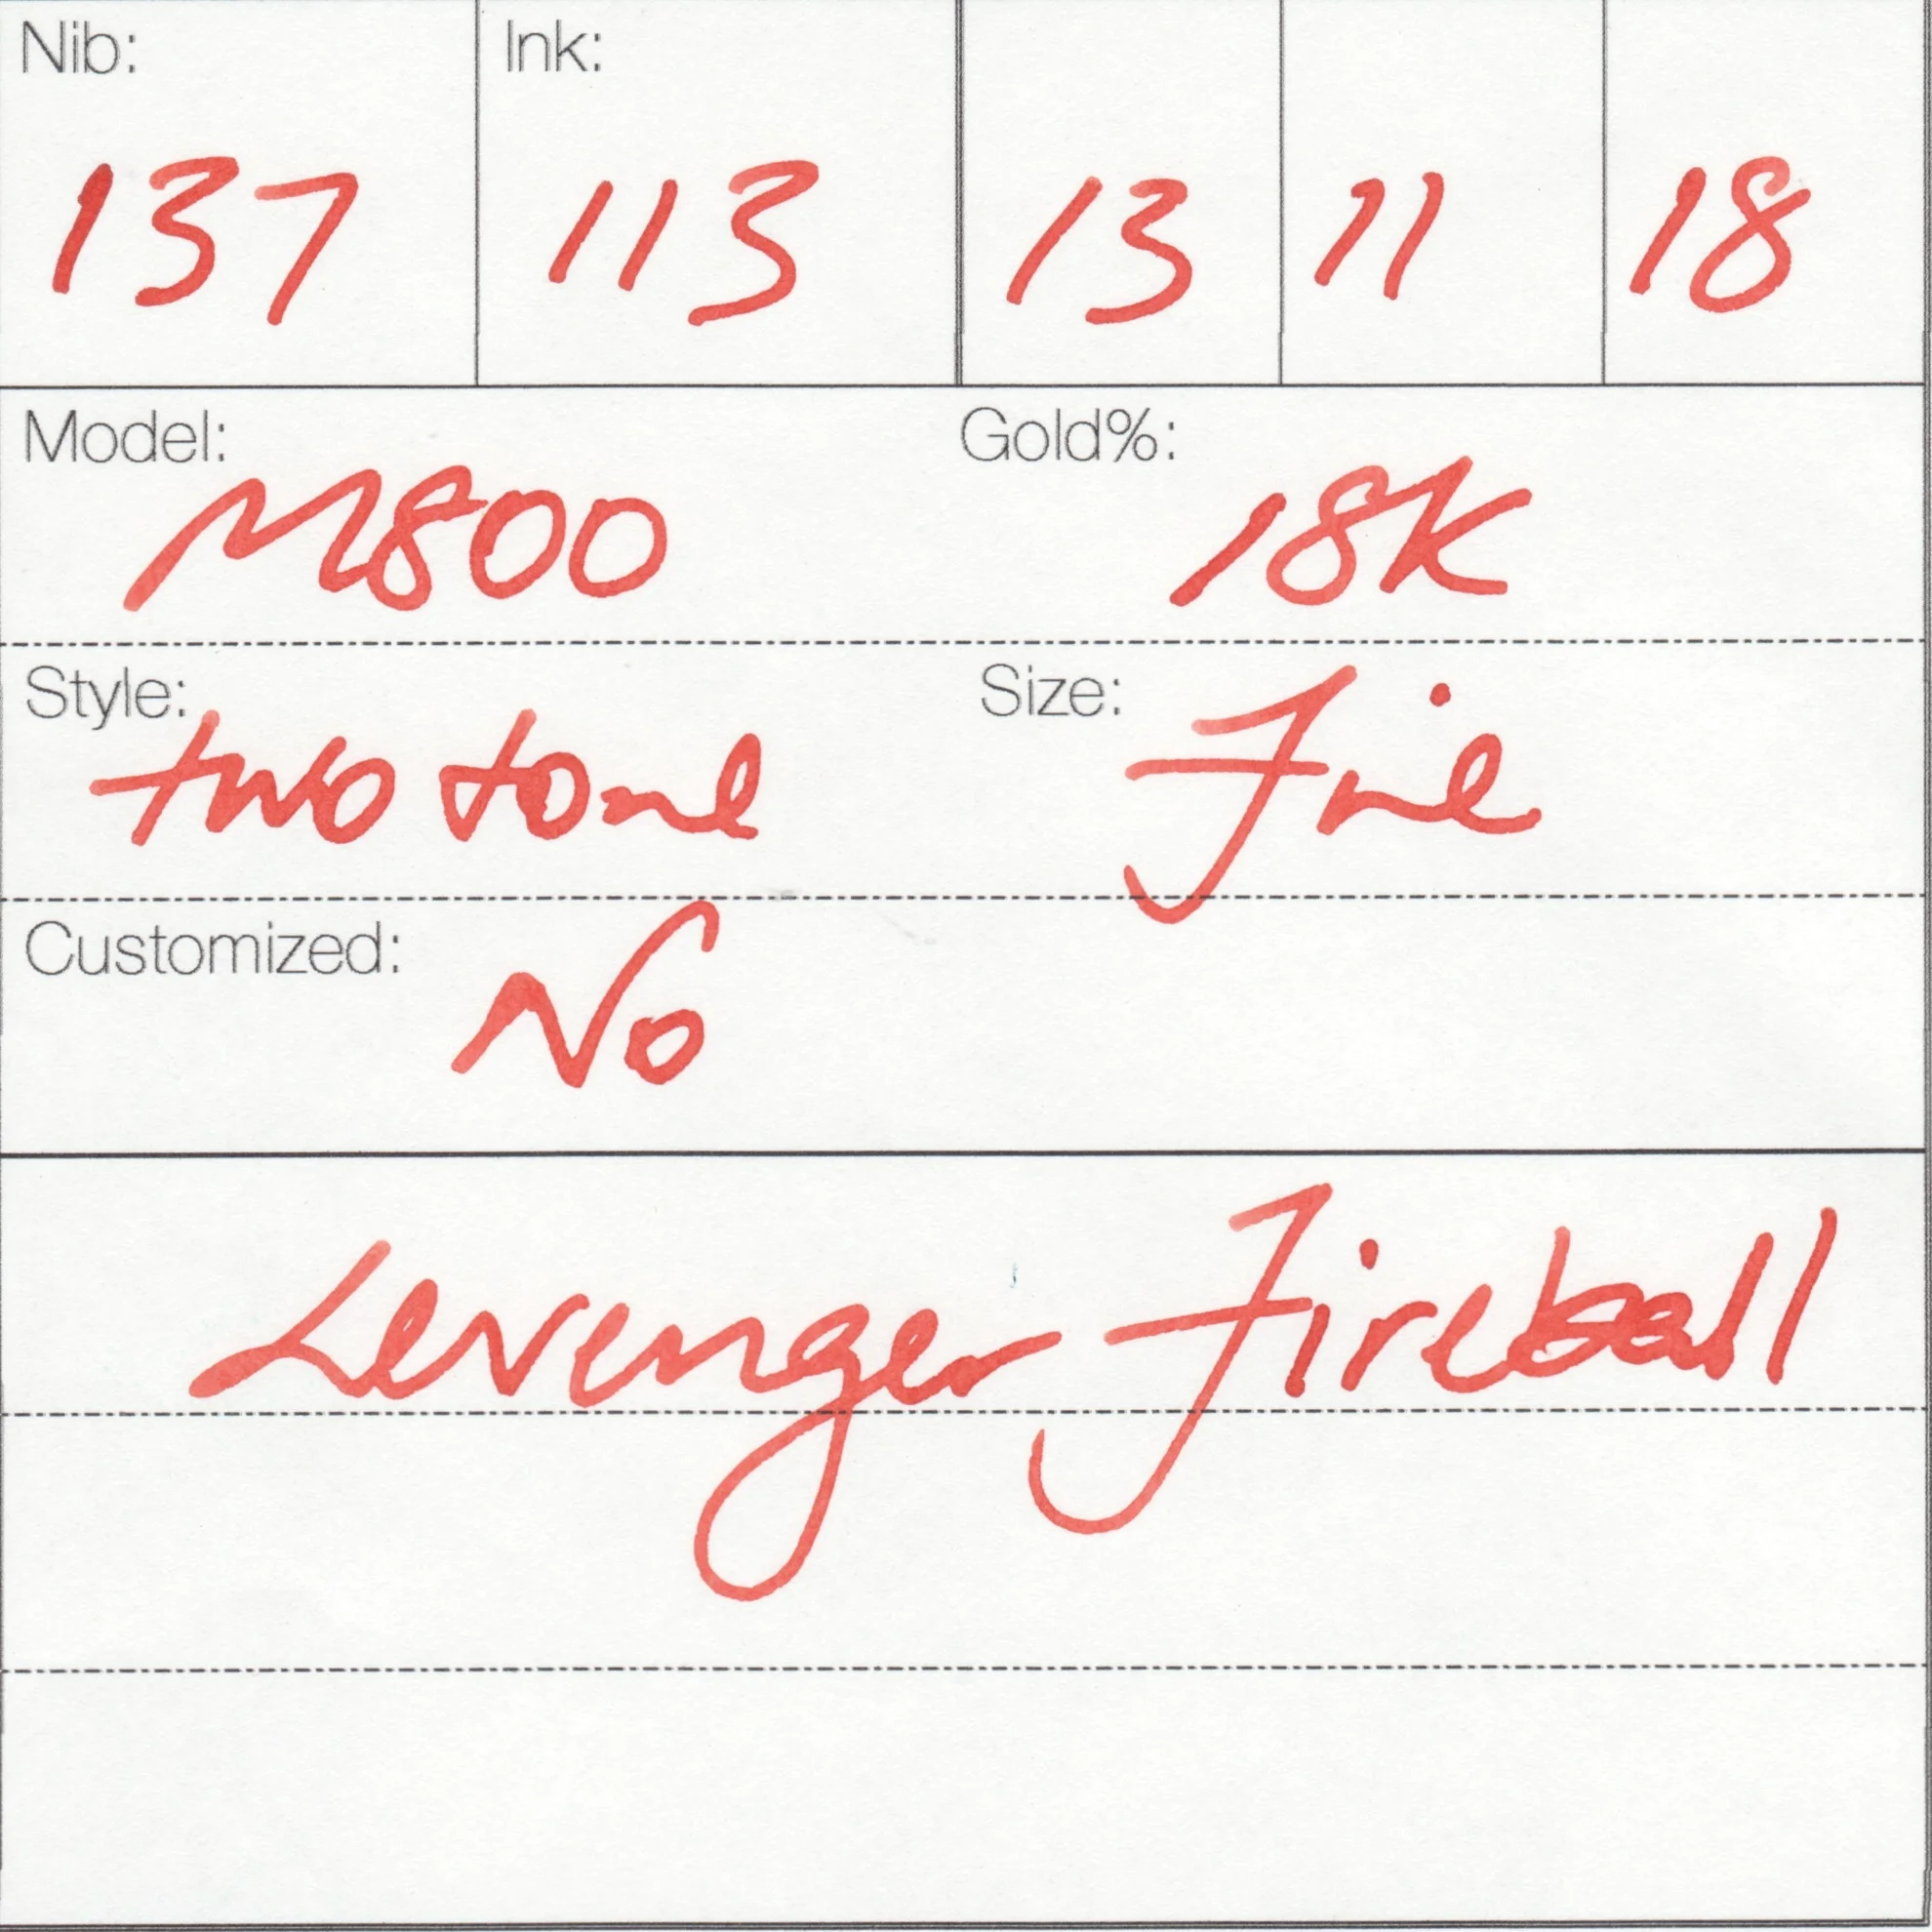 Nib: Ink:
137 113 13 11 18
Model: M800 Gold%: 18K
Style: two tone Size: Fine
Customized: No
Levenger Fireball